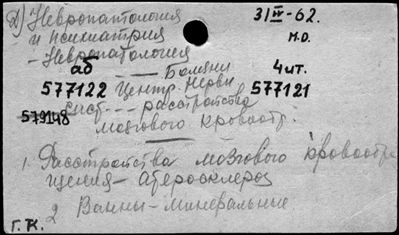 2) Невропатология 31 IV-62.
и психиатрия м.о.
- Невропатология
аб —— Болезни 4 чт.
577122 Центр. нервн 577121
579148 сист - - расстройства
мозгового кровообр.
1. Расстройства мозгового кровообр
щения - атеросклероз
2 Ванны - минеральные
Г.К.